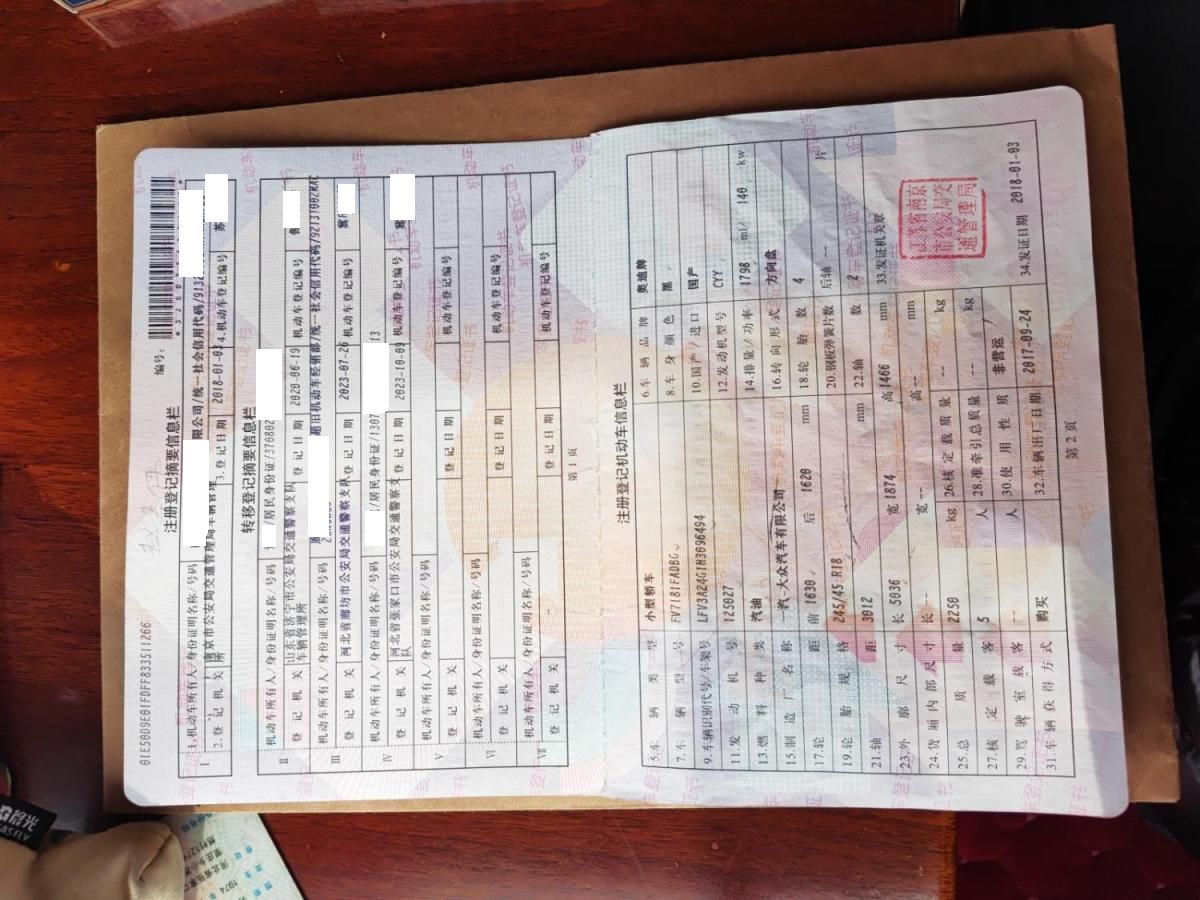 01E50D9E01FDFF833511266
编号:
注册登记摘要信息栏
Ⅰ
1.机动车所有人/身份证明名称/号码 限公司/统一社会信用代码/913
2.登记机关 南京市公安局交通管理局车辆管理所 3.登记日期 2018-01-03 4.机动车登记编号 苏
转移登记摘要信息栏
Ⅱ
机动车所有人/身份证明名称/号码 /居民身份证/370802
登记机关 山东省济宁市公安局交通警察支队车辆管理所 登记日期 2020-06-19 机动车登记编号 鲁
Ⅲ
机动车所有人/身份证明名称/号码 超旧机动车经销部/统一社会信用代码/92131002MA
登记机关 河北省廊坊市公安局交通警察支队 登记日期 2023-07-26 机动车登记编号 冀
Ⅳ
机动车所有人/身份证明名称/号码 /居民身份证/1307 13
登记机关 河北省张家口市公安局交通警察支队 登记日期 2023-10-09 机动车登记编号 冀
Ⅴ
机动车所有人/身份证明名称/号码
登记机关 登记日期 机动车登记编号
Ⅵ
机动车所有人/身份证明名称/号码
登记机关 登记日期 机动车登记编号
Ⅶ
机动车所有人/身份证明名称/号码
登记机关 登记日期 机动车登记编号
第1页
注册登记机动车信息栏
5.车辆类型 小型轿车 6.车辆品牌 奥迪牌
7.车辆型号 FV7181FADBG 8.车身颜色 黑
9.车辆识别代号/车架号 LFV3A24G1H3096494 10.国产/进口 国产
11.发动机号 125027 12.发动机型号 CYY
13.燃料种类 汽油 14.排量/功率 1798 ml/ 140 kw
15.制造厂名称 一汽-大众汽车有限公司 16.转向形式 方向盘
17.轮距 前 1630 后 1620 mm 18.轮胎数 4
19.轮胎规格 245/45 R18 20.钢板弹簧片数 后轴 -- 片
21.轴距 3012 mm 22.轴数 2
23.外廓尺寸 长 5036 宽 1874 高 1466 mm 33.发证机关章
24.货厢内部尺寸 长 -- 宽 -- 高 -- mm
25.总质量 2250 kg 26.核定载质量 -- kg
27.核定载客 5 人 28.准牵引总质量 -- kg
29.驾驶室载客 -- 人 30.使用性质 非营运
31.车辆获得方式 购买 32.车辆出厂日期 2017-09-24 34.发证日期 2018-01-03
江苏省南京
市公安局交
通管理局
第2页
晨光